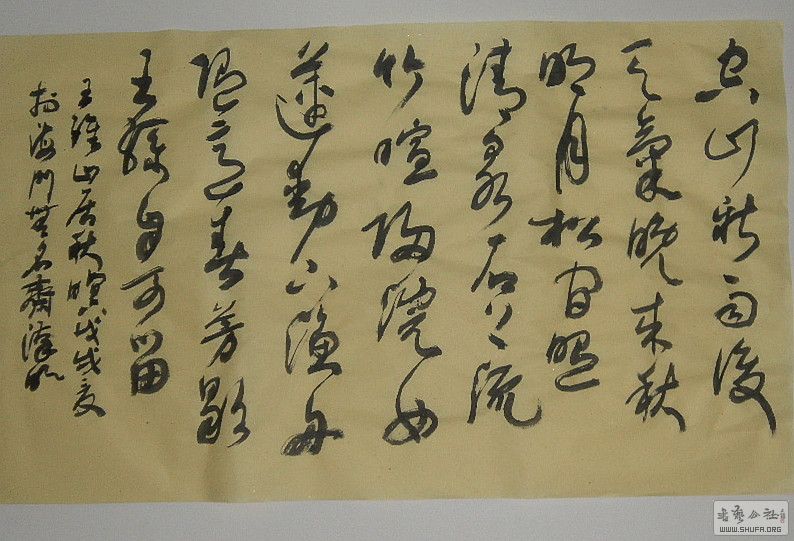 空山新雨後
天氣晚來秋
明月松間照
清泉石上流
竹喧歸浣女
蓮動下漁舟
随意春芳歇
王孫自可留
王維山居秋暝戊戌夏
於海门無名齋
書藝公社
WWW.SHUFA.ORG